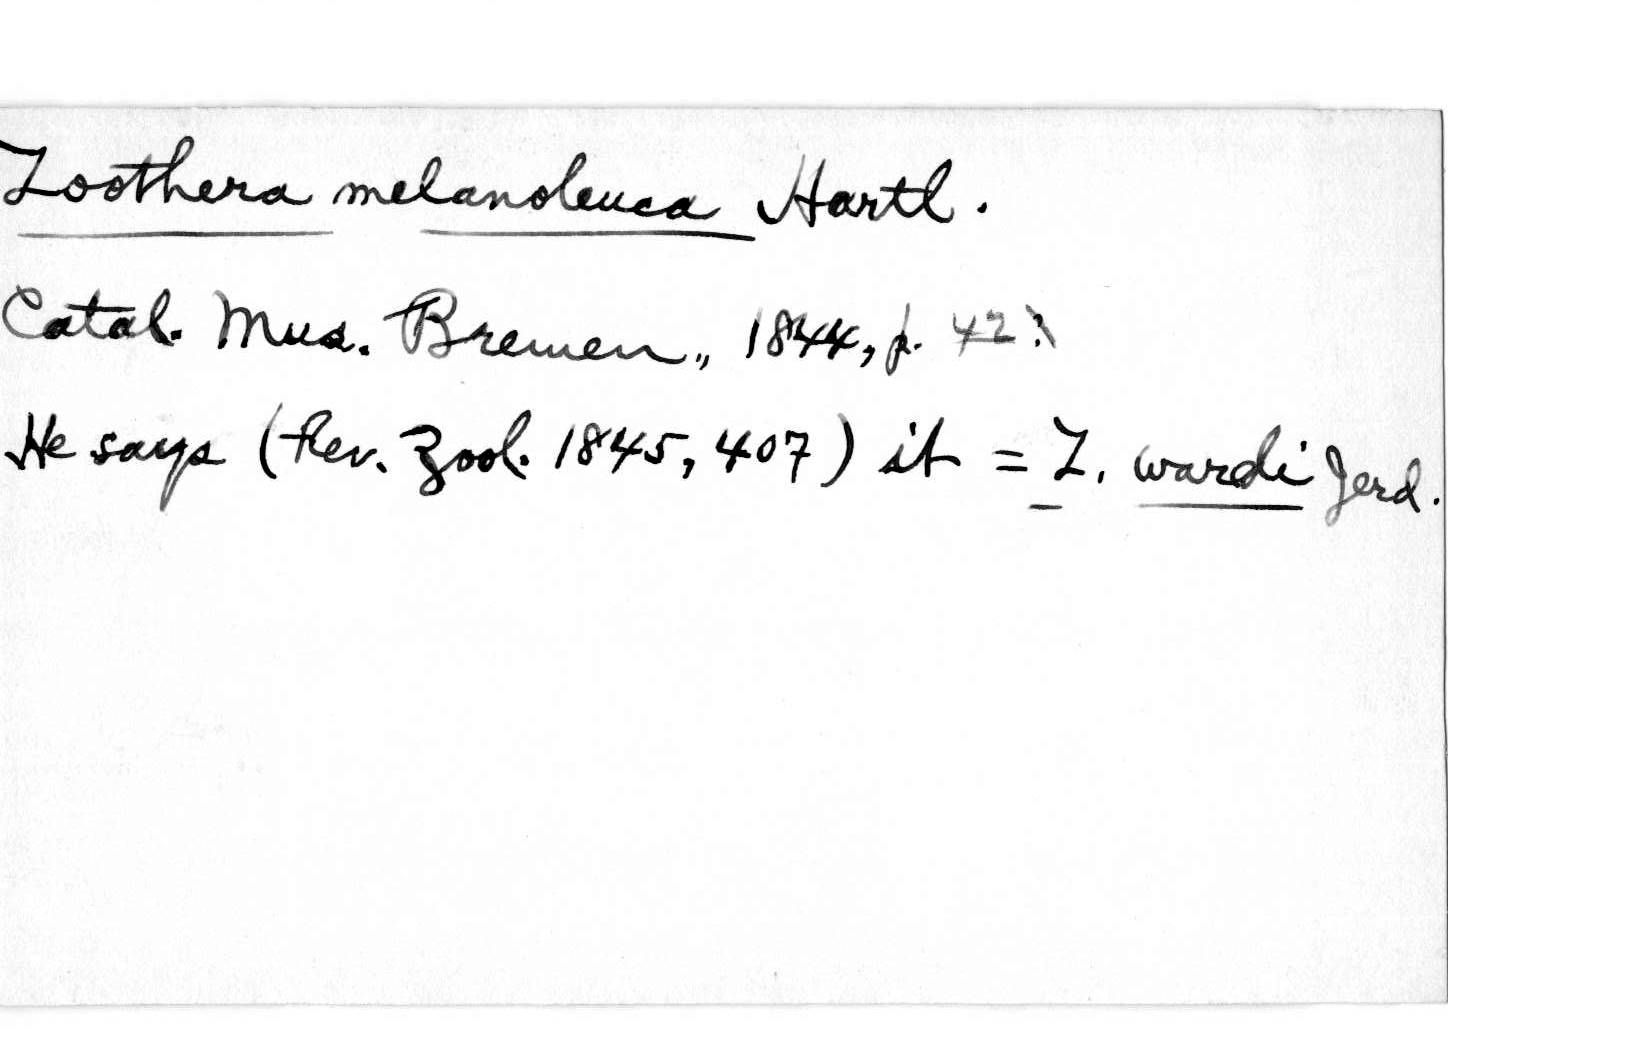 Zoothera melanoleuca Hartl.
Catal. Mus. Bremen,, 1844, p. 42?
He says (Rev. Zool. 1845, 407) it = Z. wardi Jerd.